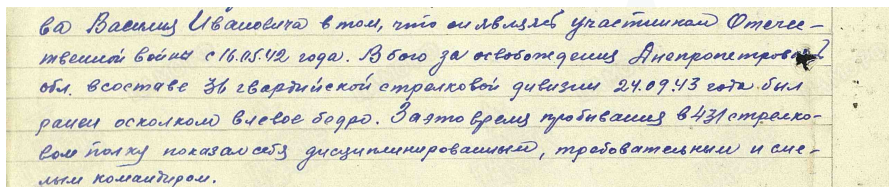 ва Василия Ивановича в том, что он являет участником Отече-
твенной войны с 16.05.42 года. В бою за освобождения Днепропетров
обл. в составе 36 гвардийской стрелковой дивизии 24.09.43 года был
ранен осколком в левое бедро. За это время пробывания в 431 стрелко-
вом полку показал себя дисциплинированным, требовательным и сме-
лым командиром.